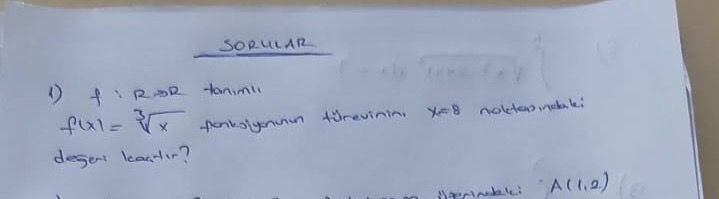 SORULAR
1) f : R→R tanımlı
f(x) = ∛x fonksiyonunun türevinin x=8 noktasındaki
değeri kaçtır?
üzerindeki A(1,2)